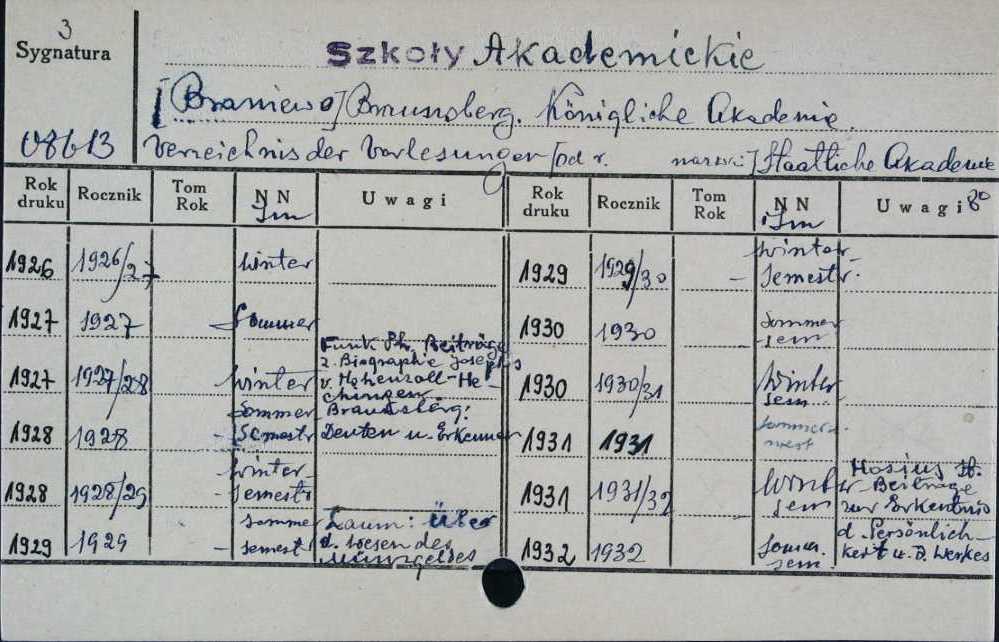 3
Sygnatura
Szkoły Akademickie
[Braniewo] Braunsberg. Königliche Akademie.
08613 Verzeichnis der Vorlesungen [od r. nazwa:] Staatliche Akademie
Rok druku Rocznik Tom Rok NN Sm Uwagi Rok druku Rocznik Tom Rok NN Sm Uwagi 8°
1926 1926/27 Winter
1929 1929/30 — Winter-
Semestr.
1927 1927 — Sommer
1930 1930 Sommer
sem
1927 1927/28 Winter
Funk Ph. Beiträge
z. Biographie Josephs
v. Hohenzoll-He-
chingen
1930 1930/31 Winter
Sem
1928 1928 - Sommer
Semestr
Braunsberg:
Deuten u. Erkennen
1931 1931 Sommer
1928 1928/29 - Winter-
Semestr
1931 1931/32 Winter
sem
Hosius St.
Beiträge
zur Erkentnis
d. Persönlich-
keit u. s. Werkes
1929 1929 — Sommer
Semest
Laum: Über
d. Wesen des
Münzgeldes
1932 1932 Sommer.
sem.